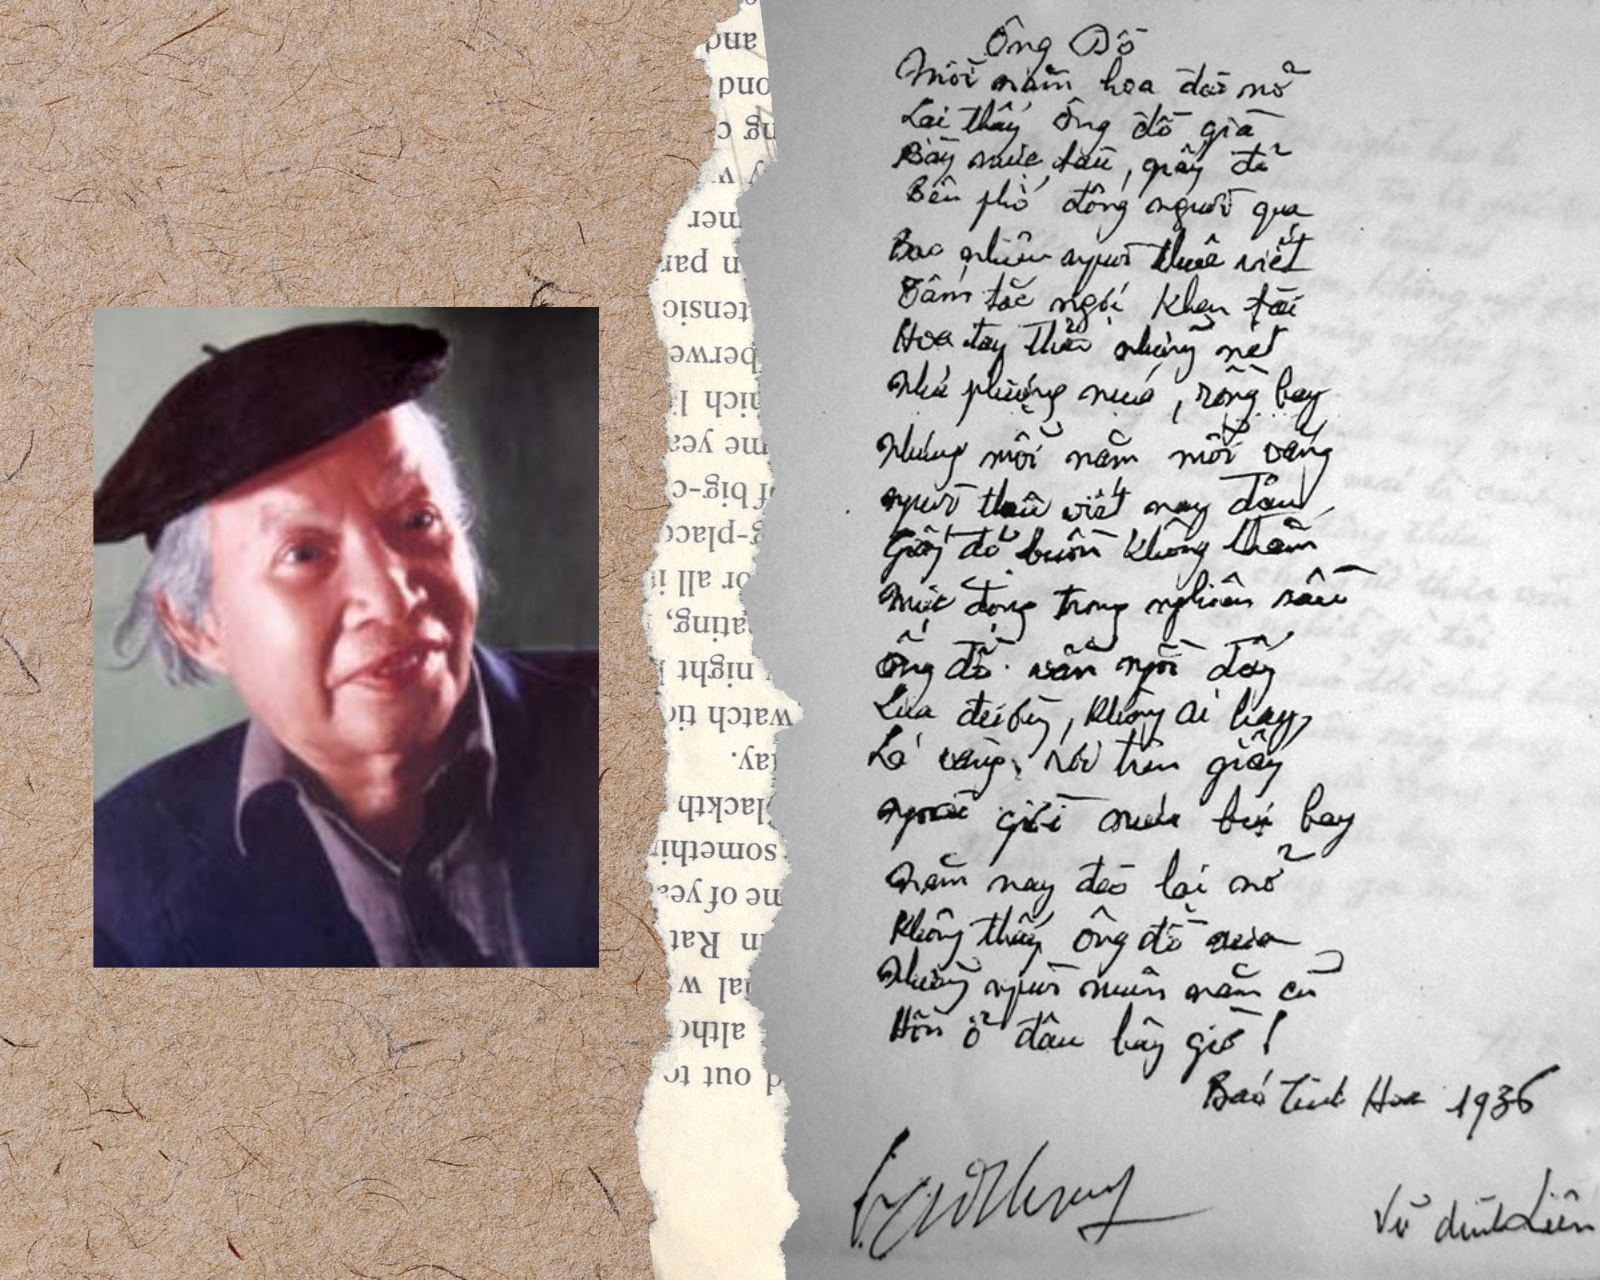 Ông Đồ
Mỗi năm hoa đào nở
Lại thấy ông đồ già
Bày mực tàu, giấy đỏ
Bên phố đông người qua
Bao nhiêu người thuê viết
Tấm tắc ngợi khen tài
Hoa tay thảo những nét
Như phượng múa, rồng bay
Nhưng mỗi năm mỗi vắng
Người thuê viết nay đâu
Giấy đỏ buồn không thắm
Mực đọng trong nghiên sầu
Ông đồ vẫn ngồi đấy
Qua đường, không ai hay,
Lá vàng rơi trên giấy
Ngoài giời mưa bụi bay
Năm nay đào lại nở
Không thấy ông đồ xưa
Những người muôn năm cũ
Hồn ở đâu bây giờ!
Báo Tinh Hoa 1936
Vũ đình Liên